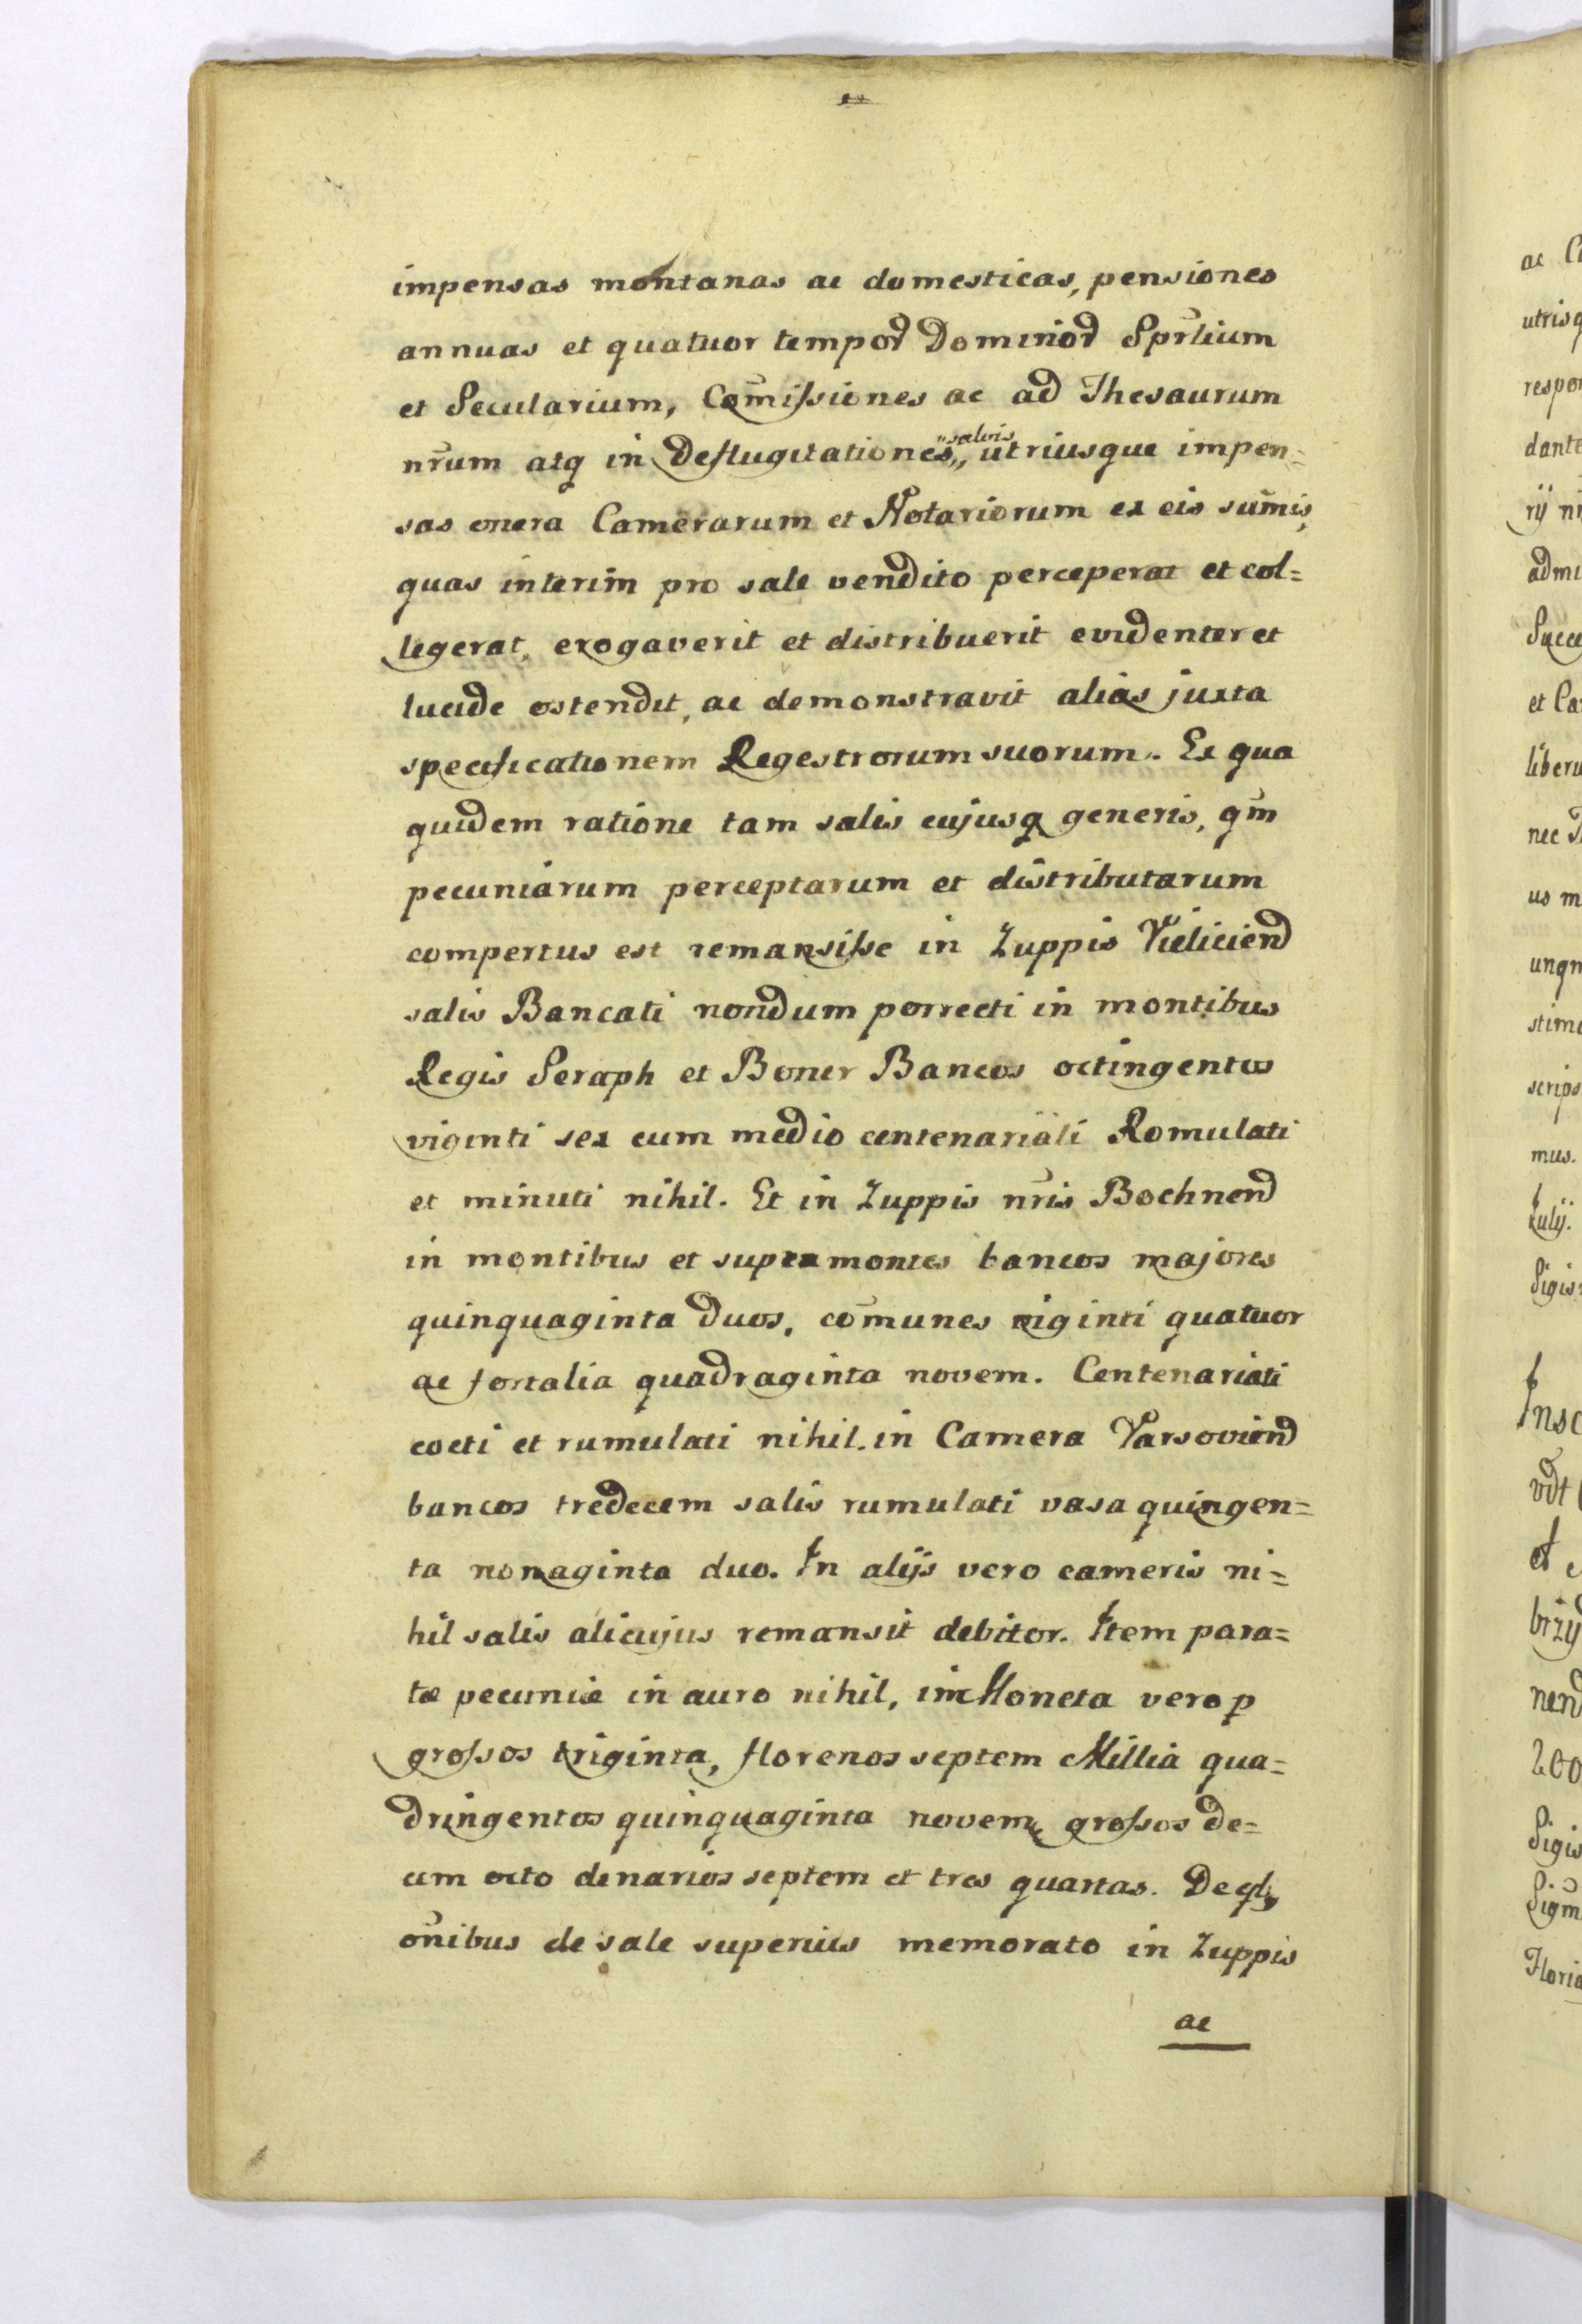 impensas montanas ac domesticas, pensiones
annuas et quatuor tempor Dominor Spr̄lium
et Secularium, Com̄issiones ac ad Thesaurum
nr̄um atq in Deflugitationes „salvis„ utriusque impen=
sas onera Camerarum et Notariorum ex eis sum̄is,
quas interim pro sale vendito perceperat et col=
legerat, erogaverit et distribuerit evidenter et
lucide ostendit, ac demonstravit alias juxta
specificationem Regestrorum suorum. Ex qua
quidem ratione tam salis cujusq generis, qm̄
pecuniarum perceptarum et distributarum
compertus est remansisse in Zuppis Vieliciend
salis Bancati nondum porrecti in montibus
Regis Seraph et Boner Bancos octingentos
viginti sex cum medio centenariali Romulati
et minuti nihil. Et in Zuppis nr̄is Bochnend
in montibus et supra montes bancos majores
quinquaginta duos, com̄unes viginti quatuor
ac fortalia quadraginta novem. Centenariati
cocti et rumulati nihil. in Camera Varsoviend
bancos tredecem salis rumulati vasa quingen=
ta nonaginta duo. In alijs vero cameris ni=
hil salis alicujus remansit debitor. Item para=
tæ pecuniæ in auro nihil, in Moneta vero p
grossos triginta, florenos septem Millia qua=
dringentos quinquaginta novem, grossos de=
cem octo denarios septem et tres quartas. De
om̄ibus de sale superius memorato in Zuppis
ac
ac
utrisq
respo
dante
rij
admi
Succe
et Ca
liberu
nec
us m
unqm
stim
scrips
mus.
Julij.
Sigis
Insc
vdt
et
brzy
nend
200
Sigis
Sigm̄
Floria